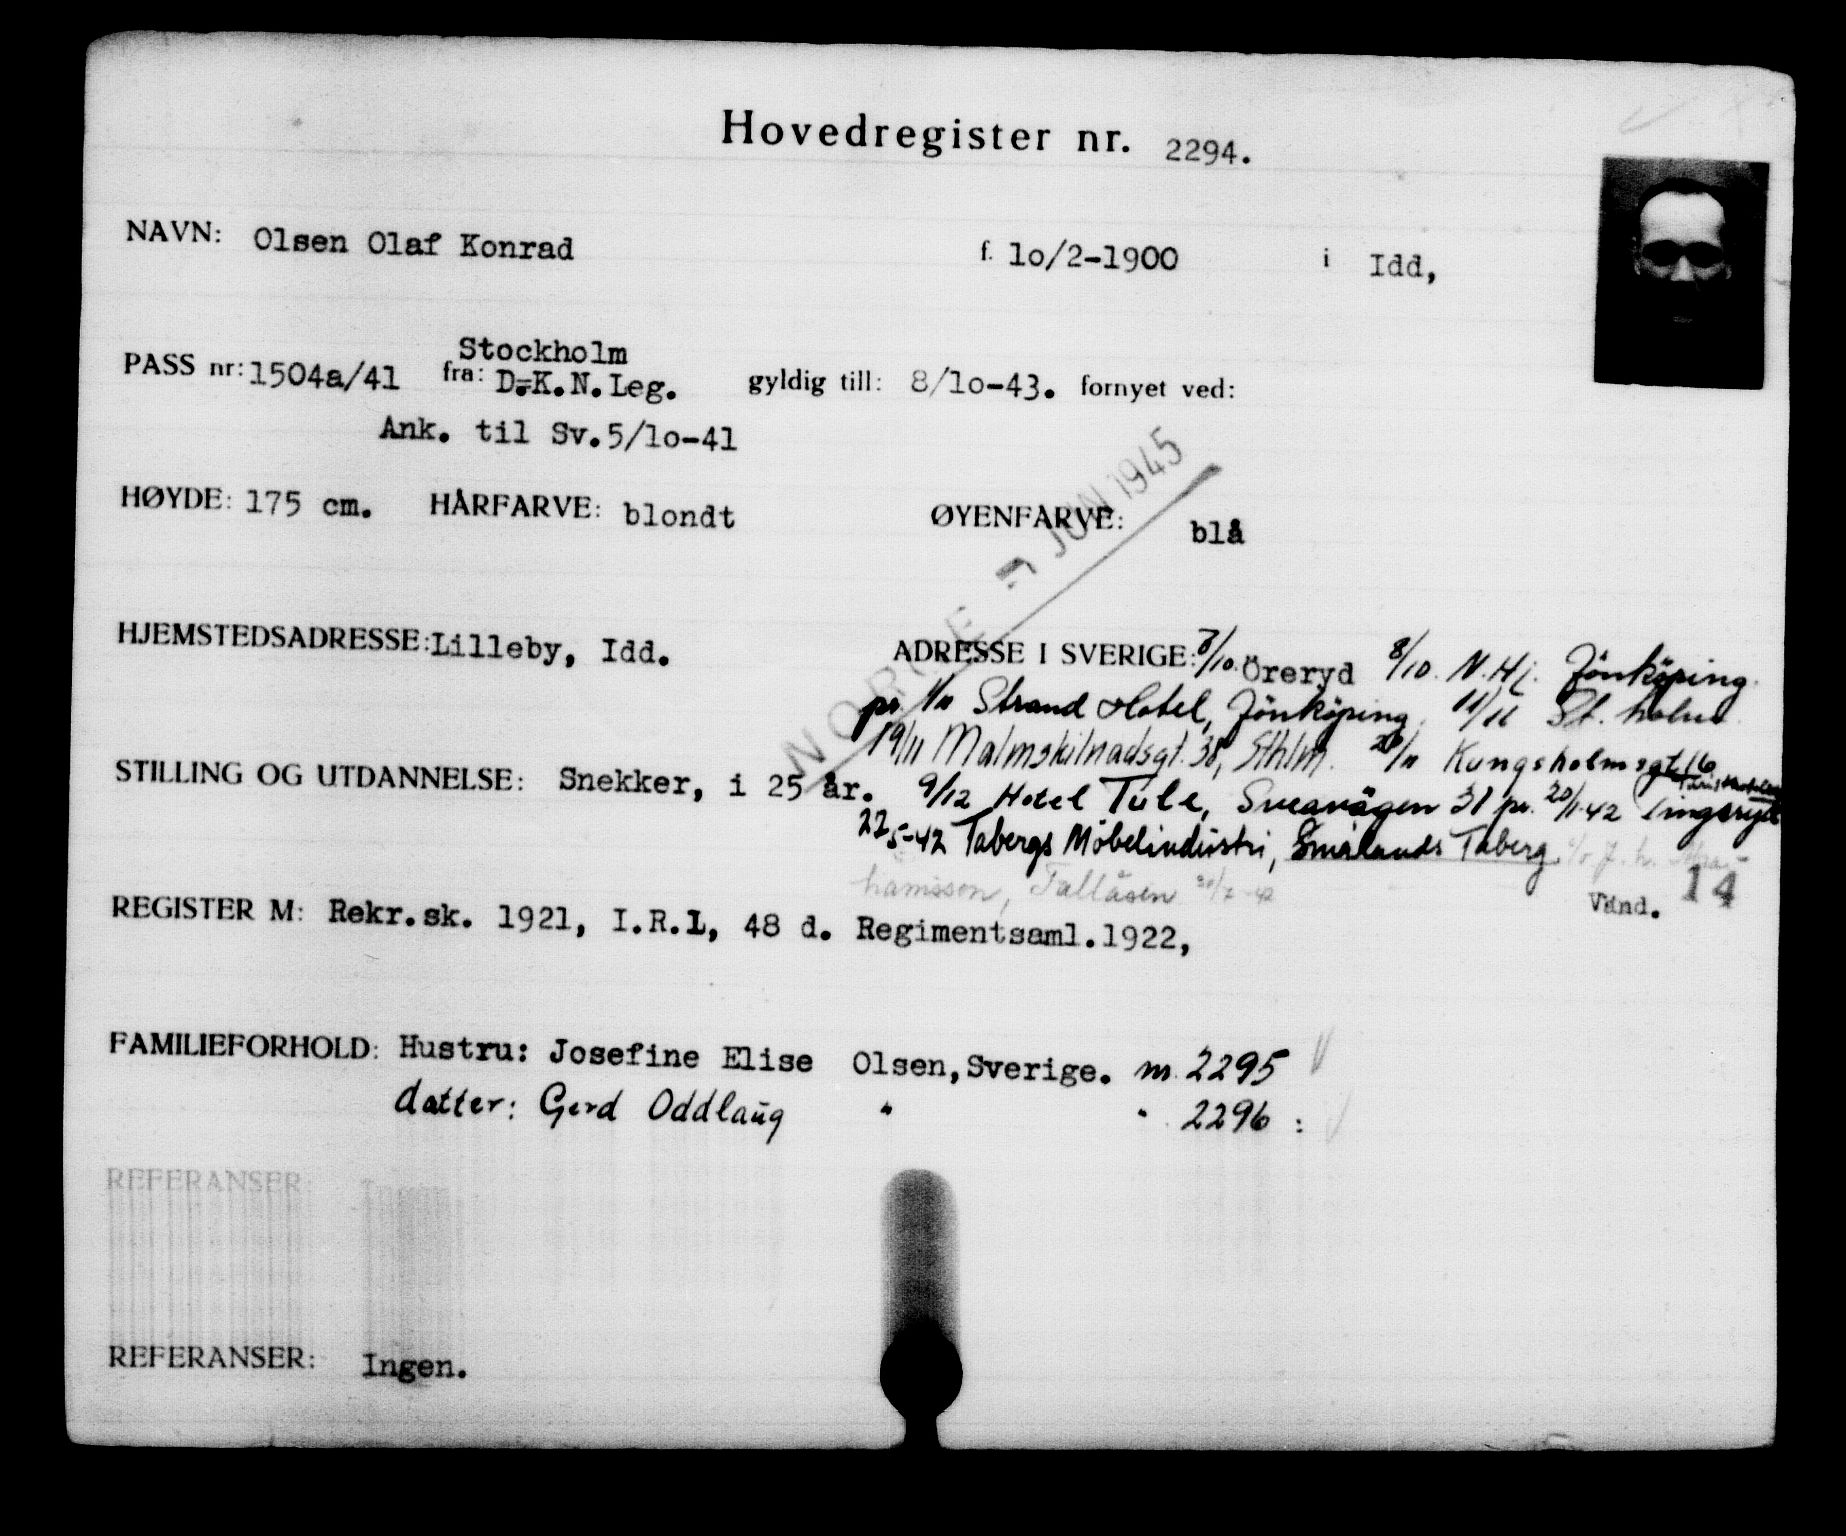 Hovedregister nr. 2294.
NAVN: Olsen Olaf Konrad f. 1o/2-1900 i Idd,
Stockholm
PASS nr: 1504a/41 fra: D.K.N.Leg. gyldig till: 8/1o-43. fornyet ved:
Ank. til Sv.5/1o-41
HØYDE: 175 cm. HÅRFARVE: blondt ØYENFARVE: blå
NORGE - 7 JUN 1945
HJEMSTEDSADRESSE: Lilleby, Idd. ADRESSE I SVERIGE: /10. Öreryd 8/10. N.Hj. Jönköping.
pr. 1/11 Strand Hotel, Jönköping. 11/11 St. holm
19/11 Malmskilnadsgt. 38, Sthlm. /11 Kungsholmsgt 16
STILLING OG UTDANNELSE: Snekker, i 25 år. 9/12 Hotel Tule, Sveavägen 31 pr. 20/1-42 Tingsryd
22/5-42 Tabergs Möbelindustri, Smålands Taberg.
Tallåsen
Vend. 14
REGISTER M: Rekr.sk. 1921, I.R.1, 48 d. Regimentsaml.1922,
FAMILIEFORHOLD: Hustru: Josefine Elise Olsen,Sverige. nr. 2295
datter: Gerd Oddlaug " " 2296 :
REFERANSER:
REFERANSER: Ingen.